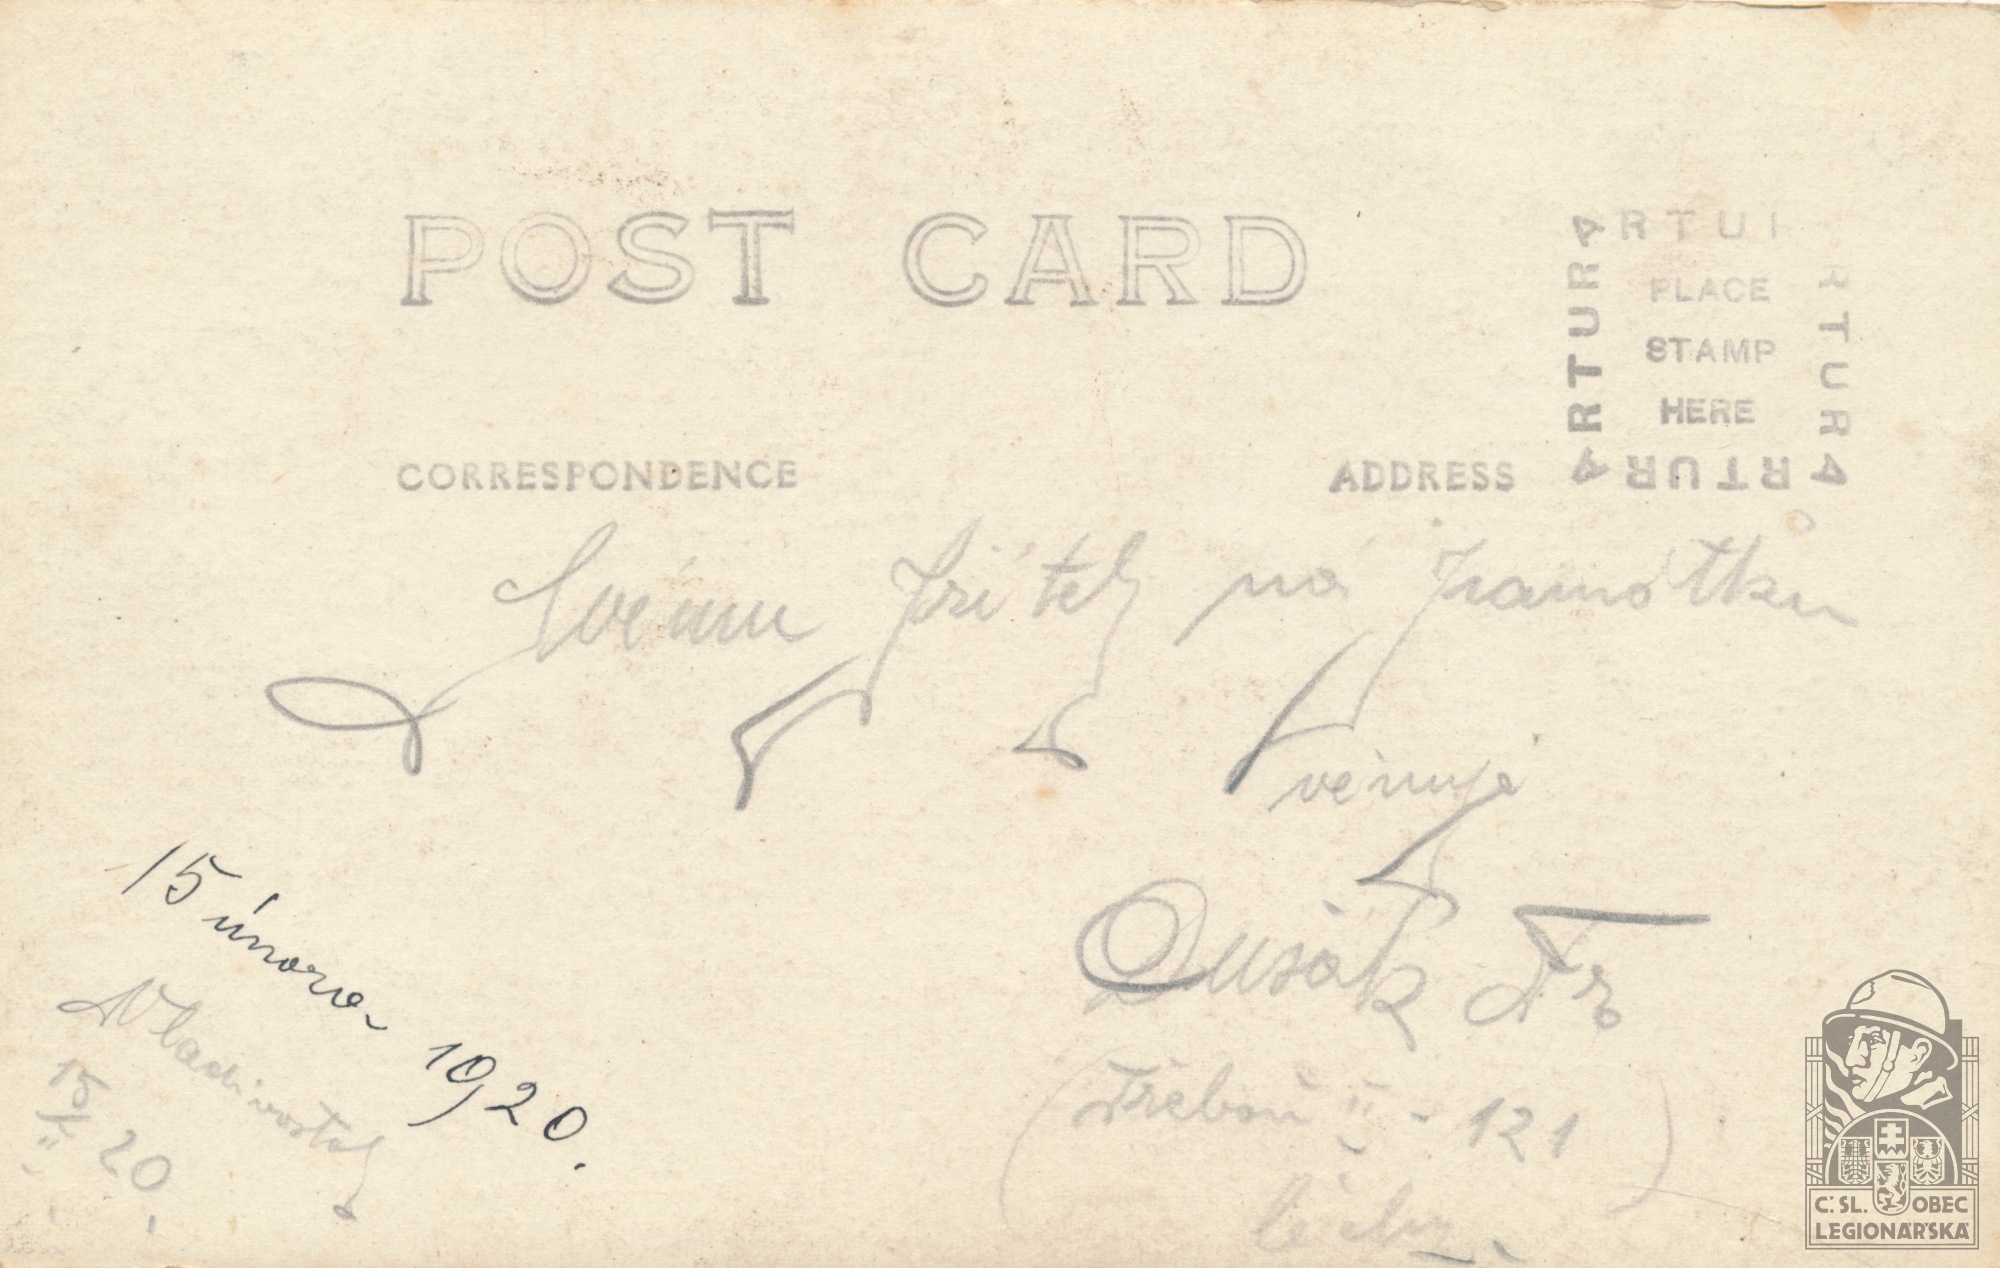 POST CARD
ARTURA
ARTURA
ARTURA
ARTURA
PLACE
STAMP
HERE
CORRESPONDENCE
ADDRESS
Svému příteli na památku
věnuje
Dušák Fr
(Třeboň II - 121
Čechy.)
15 února 1920.
Vladivostok
15/II 20.
Č. SL. OBEC
LEGIONÁŘSKÁ